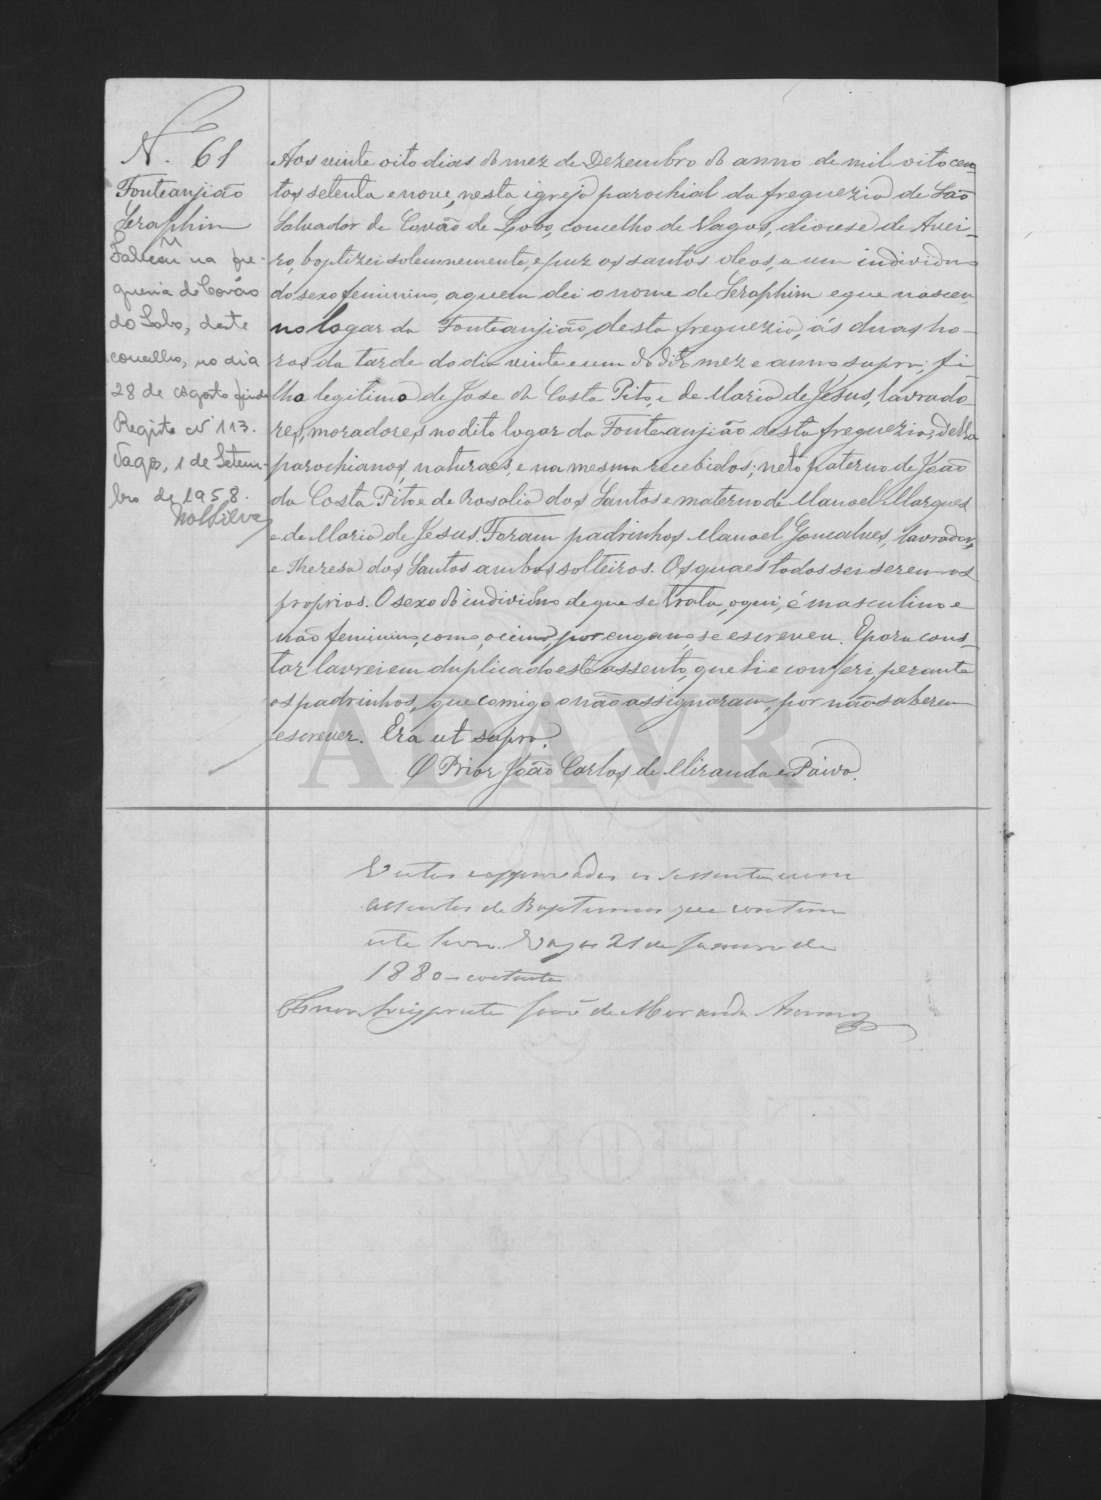 N. 61
Fonteanjião
Seraphim
Faleceu na fre-
guesia de Covão
do Lobo, deste
concelho, no dia
28 de Agosto findo
Registo nº 113.
Vagos, 1 de Setem-
bro de 1958.
Aos vinte oito dias do mez de Dezembro do anno de mil oito cen-
tos setenta e nove, nesta igreja parochial da freguezia de São
Salvador de Covão de Lobo, concelho de Vagos, diocese de Avei-
ro, baptizei solemnemente, e puz os santos oleos, a um individuo
do sexo feminino, a quem dei o nome de Seraphim e que nasceu
no logar da Fonteanjião, desta freguezia, ás duas ho-
ras da tarde do dia vinte e um do dito mez e anno supra, fi-
lho legitimo de José da Costa Pito, e de Maria de Jesus, lavrado-
res, moradores no dito logar da Fonteanjião desta freguezia, della
parochianos, naturaes, e na mesma recebidos; neto paterno de João
da Costa Pito e de Rosalia dos Santos e materno de Manoel Marques
e de Maria de Jesus. Foram padrinhos Manoel Goncalves, lavrador,
e Thereza dos Santos ambos solteiros. Os quaes todos sei serem os
proprios. O sexo do individuo de que se trata, aqui, é masculino e
não feminino, como, acima, por engano, se escreveu. E para cons-
tar lavrei em duplicado este assento, que li e conferi perante
os padrinhos, que comigo o não assignaram, por não saberem
escrever. Era ut supra.
O Prior João Carlos de Miranda e Paiva.
ADAVR
Vistos e approvados os sessenta e um
assentos de Baptismos que contem
este livro. Vagos 21 de Janeiro de
1880 e oitenta
João de Miranda